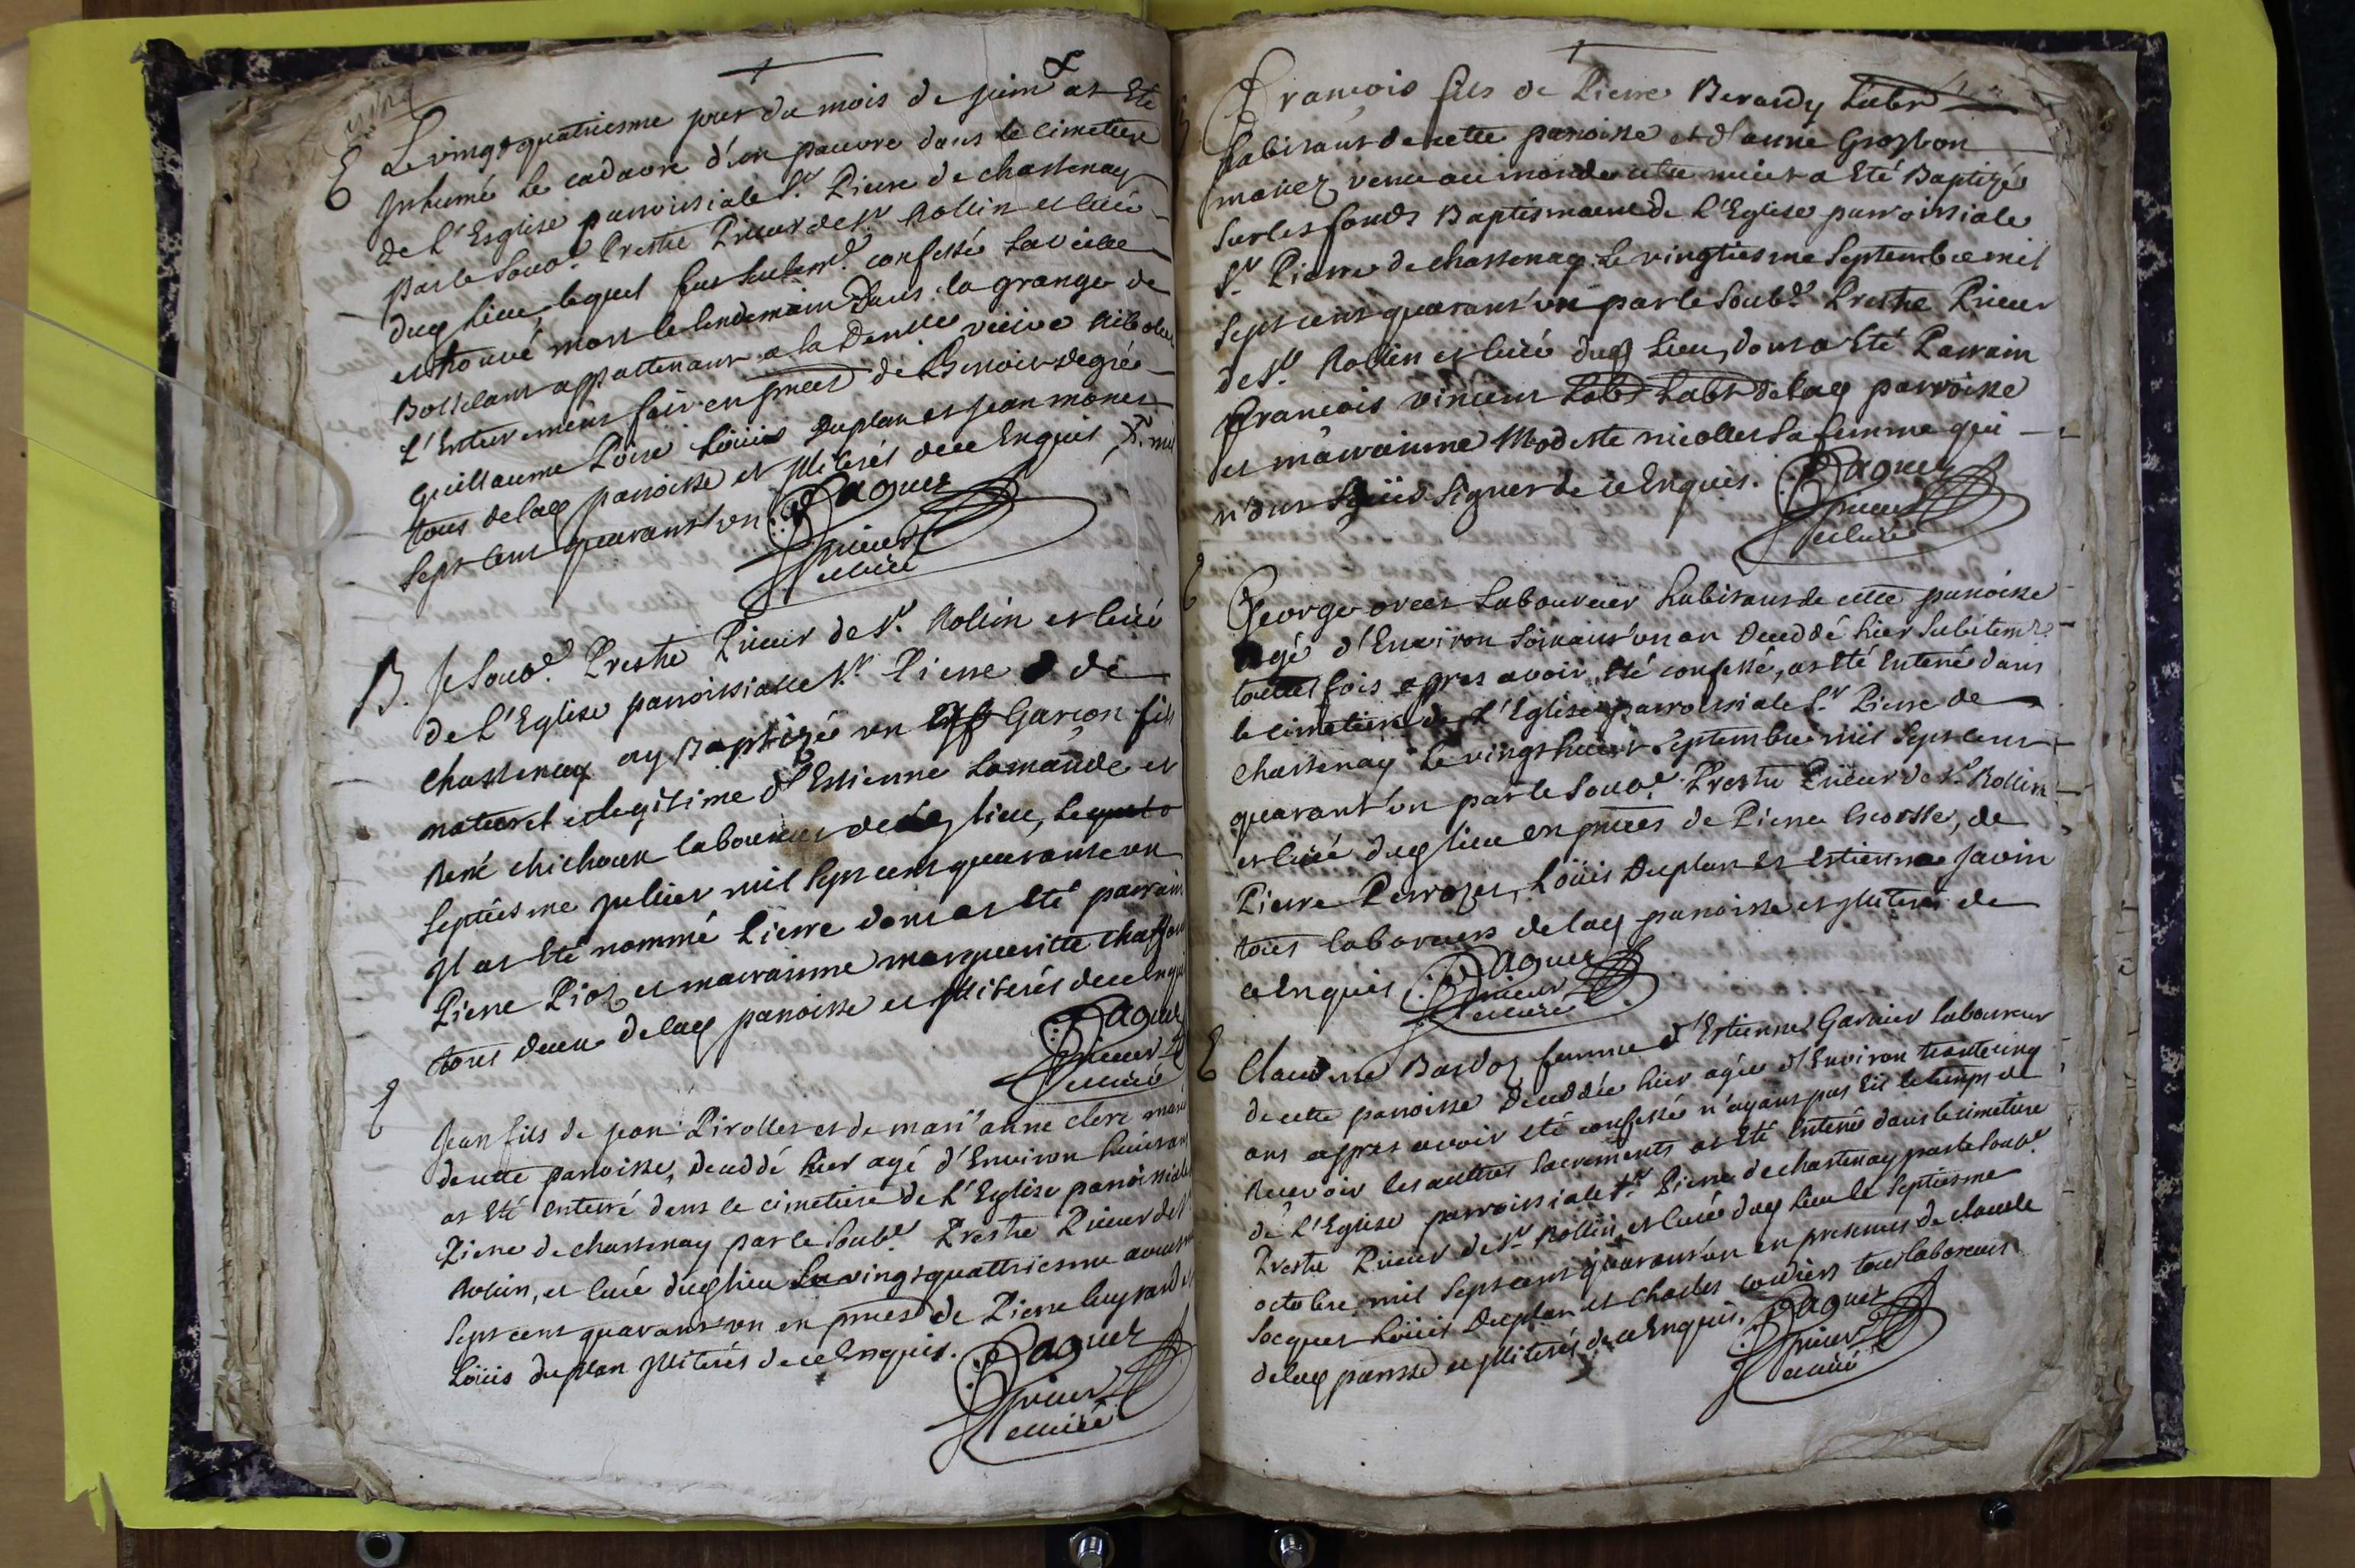 E Le vingt quatriesme jour du mois de juin at Eté
Inhumé le cadavre d'un pauvre dans le cimetiere
de L'Esglise parroissiale St. Pierre de chastenay
par le Soub.é Prestre Prieur de St. Rollin et Curé
dud lieu lequel fut seulemt. confessé la veille
et trouvé mort le lendemain dans la grange de
appartenant a la Demlle veuve
L'Enterrement fait en pnces de Benoit degrée
Guillaume Poire Loüis Duplan et Jean monet
tous de lad parroisse et Illiterés de ce Enquis, mil
Sept Cent quarant'un Paquet
prieur
et curé
B. Je Soub.é Prestre Prieur de St. Rollin et Curé
de L'Eglise parroissialle St. Pierre de
Chastenay ay Baptizé un Garçon fils
naturel et legitime d'Estienne Lamande et
René chichoux laboureur dud lieu, le
Septiesme juillet mil Sept cent quarante un
Il at Eté nommé Pierre dont at Eté parrain
Pierre Piot, et marrainne margueritte
tous deux de lad parroisse et Illiterés de ce Enquis
Paquet
prieur
et curé
E Jean fils de jean Pirollet et de mari'anne clerc mariés
de cette parroisse, Deceddé hier agé d'Environ huit ans
at Eté Enterré dans le cimetiere de L'Eglise parroissiale
Pierre de chastenay par le Soub.é Prestre Prieur de St.
Rollin, et Curé dud lieu Le vingt quattriesme aoust
Sept cent quarant'un en pnces de Pierre Guyrard et
Loüis duplan Illiterés de ce Enquis. Paquet
prieur
et curé
François fils de Pierre Berardy Labr
habitant de cette parroisse et d'anne Grosbon
mariez, venu au monde cette nuit a Eté Baptizé
sur les fonds Baptismaux de L'Eglise parroissiale
St. Pierre de chastenay. Le vingtiesme Septembre mil
Sept cent quarant'un par le Soub.é Prestre Prieur
de St. Rollin et Curé dud lieu, dont a Eté Parrain
François vincent Labr de lad parroisse
et marrainne Modeste nicollet sa femme qui
n'ont Sçeüs Signer de ce Enquis. Paquet
prieur
et curé
E George Laboureur habitant de cette parroisse
agé d'Environ Soixant'un an Deceddé hier Subitemt.
touttes fois apres avoir Eté confessé, at Eté Enterré dans
le cimetiere de L'Eglise parroissiale St. Pierre de
Chastenay Le vingt huit Septembre mil Sept cent
quarant'un par le Soub.é Prestre Prieur de St. Rollin
et Curé dud lieu en pnces de Pierre Escoffe, de
Pierre Perrozet, Loüis Duplan et Estienne Javin
tous laboreurs de lad parroisse et Illiterés de
ce Enquis Paquet
prieur
et curé
E Claudine Bardoz femme d'Estienne Garnier laboureur
de cette parroisse Deceddée hier agée d'Environ trante cinq
ans appres avoir eté confessée n'ayant pas Eü le temps de
Recevoir les auttres Sacrements at Eté Enterré dans le cimetiere
de L'Eglise parroissiale St. Pierre de chastenay par le Soub.é
Prestre Prieur de St. Rollin, et Curé dud lieu le Septiesme
octobre mil Sept cent quarant'un en presences de claude
Jacquet Loüis Duplan et Charles cordiers tous laboreurs
de lad parrsse et Illiterés de ce Enquis. Paquet
prieur
et curé